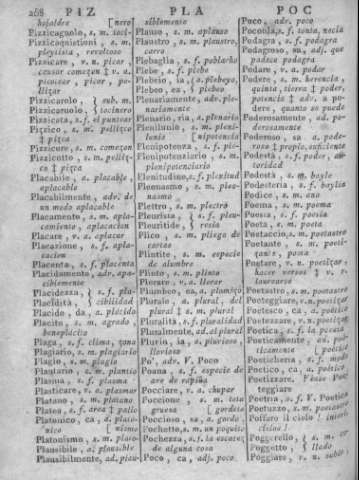 268 PIZ PLA POC
hojaldre [nero
Pizzicagnolo, s. m. toci-
Pizzicaquistioni, s. m.
pleytista, revoltoso
Pizzicare, v. n. picar,
causar comezon ‡ v. a.
picotear, picar, pe-
llizar
Pizzicarolo, sub. m.
Pizzicaruolo, tocinero
Pizzicata, s. f.
Pizzico, s. m. pellizco
‡ pizca
Pizzicore, s. m. comezon
Pizzicotto, s. m. pelliz-
co ‡ pizca
Placabile, a. placable,
aplacable
Placabilmente, adv. de
un modo aplacable
Placamento, s. m. apla-
camiento, aplacacion
Placare, v. a. aplacar
Placazione, s. f. apla-
cacion
Placenta, s. f. placenta
Placidamente, adv. apa-
ciblemente
Placidezza, s. f. pla-
Placidità, cibilidad
Placido, da, a. placido
Placito, s. m. agrado,
beneplacito
Plaga, s. f. clima, zona
Plagiario, s. m. plagiario
Plagio, s. m. plagio
Plantario, s. m. plantio
Plasma, s. f. plasma
Plasticare, v. a. plasmar
Platano, s. m. platano
Platea, s. f. area ‡ patio
Platonico, ca, a. plato-
nico [nismo
Platonismo, s. m. plato-
Plausibile, a. plausible
Plausibilmente, ad. plau-
siblemente
Plauso, s. m. aplauso
Plaustro, s. m. plaustro,
carro
Plebaglia, s. f. poblacho
Plebe, s. f. plebe
Plebeio, ia, plebeyo,
Plebeo, ea, plebeo
Plenariamente, adv. ple-
nariamente
Plenario, ria, a. plenario
Plenilunio, s. m. pleni-
lunio [nipotencia
Plenipotenza, s. f. ple-
Plenipotenziario, s. m.
plenipotenciario
Plenitudine, s. f. plenitud
Pleonasmo, s. m. pleo-
nasmo
Plettro, s. m. plectro
Pleurisia, s. f. pleu-
Pleuritide, resia
Plico, s. m. pliego de
cartas
Plintite, s. m. especie
de alumbre
Plinto, s. m. plinto
Plorare, v. a. llorar
Plumbeo, ea, a. plomizo
Plurale, a. plural, del
plural ‡ s. m. plural
Pluralità, s. f. pluralidad
Pluralmente, ad. el plural
Pluvio, ia, s. pluvioso,
llovioso
Po', adv. V. Poco
Poana, s. f. especie de
ave de rapiña
Pocciare, v. a. chupar
Poccione, s. m. teta
gruesa [gordito
Poccioso, sa, a. gordo,
Pochetto, s. m. un poquito
Pochezza, s. f. la escasez
de alguna cosa
Poco, ca, adj. poco
Poco, adv. poco
s. f. tonta, necia
Podagra, s. f. podagra
Podagroso, sa, adj. que
padece podagra
Podare, v. a. podar
Podere, s. m. herencia,
quinta, tierra ‡ poder,
potencia ‡ adv. a po-
dere, quanto se puede
Poderosamente, ad. po-
derosamente
Poderoso, sa, a. pode-
roso ‡ propio, suficiente
Podestà, s. f. poder, au-
toridad
Podestà, s. m. bayle
Podesteria, s. f. baylia
Podice, s. m. ano
Poema, s. m. poema
Poesia, s. f. poesia
Poeta, s. m. poeta
Poetaccio, s. m. poetastro
Poetante, s. m. poeti-
zante, poeta
Poetare, v. n. poetizar,
hacer versos ‡ v. r.
laurearse
Poetastro, s. m. poetastro
Poeteggiare, v. n. poetizar
Poetesco, ca, a. poetico
Poetezzare, v. n. poetizar
Poetica, s. f. la poesia
Poeticamente, ad. poe-
ticamente [poetico
Poeticheria, s. f. modo
Poetico, ca, a. poetico
Poetizzare, Vease Poe-
teggiare
Poetria, s. f. V. Poetica
Poetuzzo, s. m. poetastro
Poffare il cielo! interj.
cielos!
Poggerello, s. m. cer-
Poggetto,
Poggiare, v. n. subir